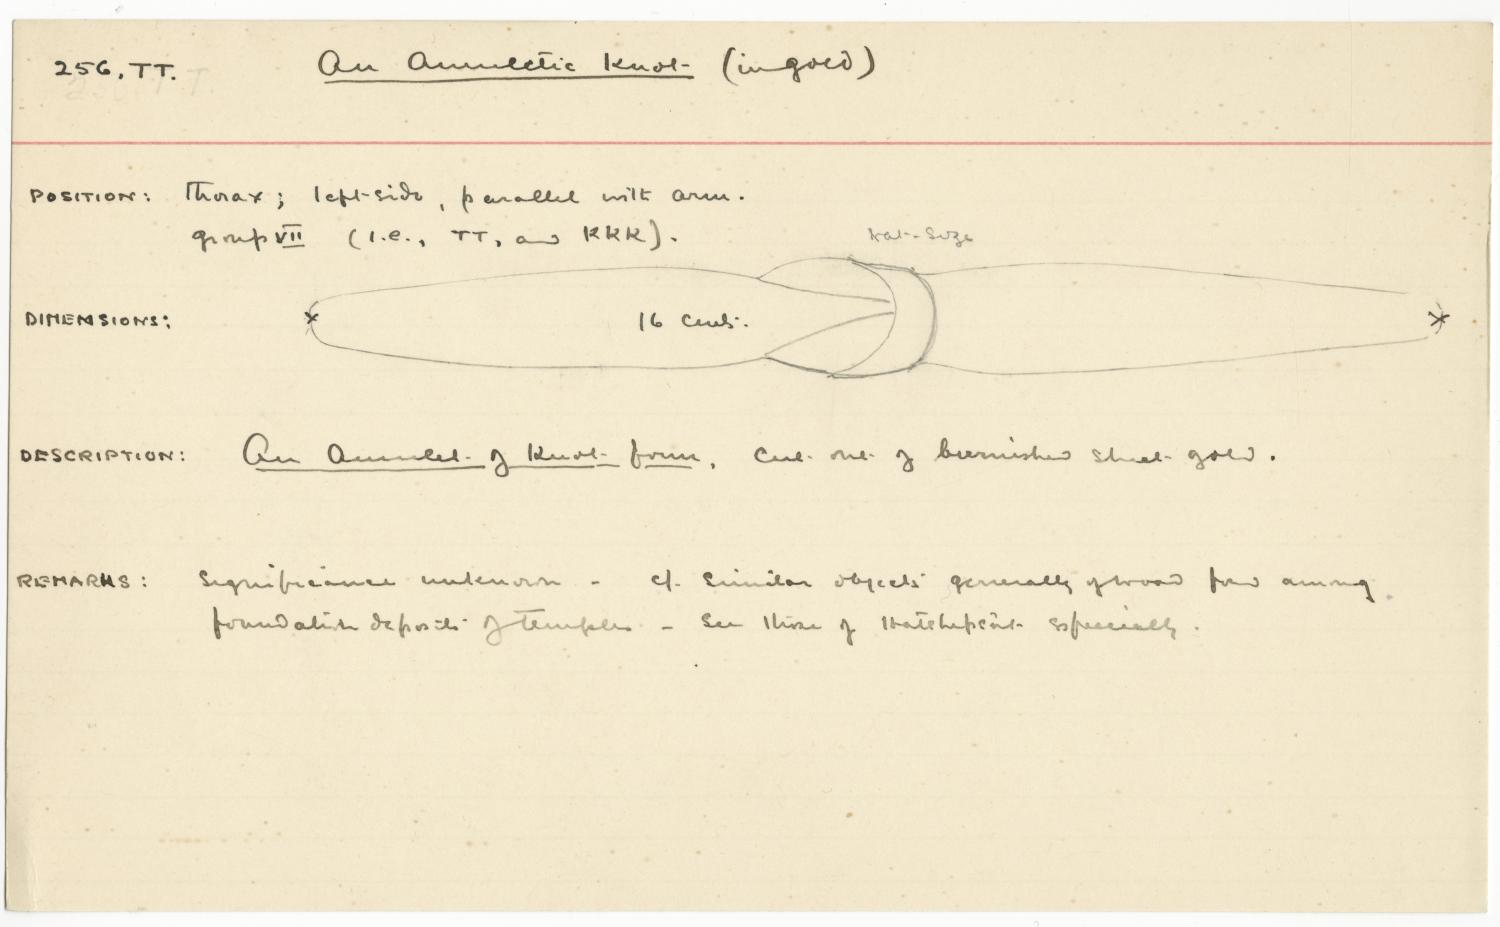 256, TT. An Amuletic Knot (in gold)
POSITION: Thorax; left-side, parallel with arm.
group VII (i.e., TT, and KKK).
Nat-Size
DIMENSIONS: 16 cents.
DESCRIPTION: An Amulet of Knot form, cut out of burnished sheet gold.
REMARKS: Significance unknown - cf. similar objects generally of wood found among
foundation deposits of temples - See those of Hatchepsût especially.